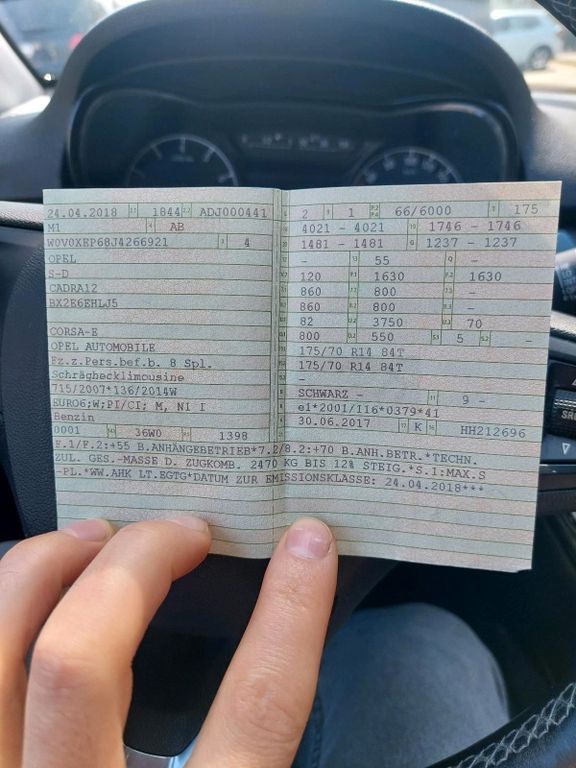 24.04.2018 1844 ADJ000441
M1 AB
W0V0XEP68J4266921 4
OPEL
S-D
CADRA12
BX2E6EHLJ5
CORSA-E
OPEL AUTOMOBILE
Fz.z.Pers.bef.b. 8 Spl.
Schräghecklimousine
715/2007*136/2014W
EURO6;W;PI/CI; M, NI I
Benzin
0001 36W0 1398
2 1 66/6000 175
4021 - 4021 1746 - 1746
1481 - 1481 1237 - 1237
- 55 -
120 1630 1630
860 800 -
860 800 -
82 3750 70
800 550 5 -
175/70 R14 84T
175/70 R14 84T
-
SCHWARZ - 9 -
e1*2001/116*0379*41
30.06.2017 K HH212696
F.1/F.2:+55 B.ANHÄNGEBETRIEB*7.2/8.2:+70 B.ANH.BETR.*TECHN.
ZUL. GES.-MASSE D. ZUGKOMB. 2470 KG BIS 12% STEIG.*S.1:MAX.5
-PL.*WW.AHK LT.EGTG*DATUM ZUR EMISSIONSKLASSE: 24.04.2018***